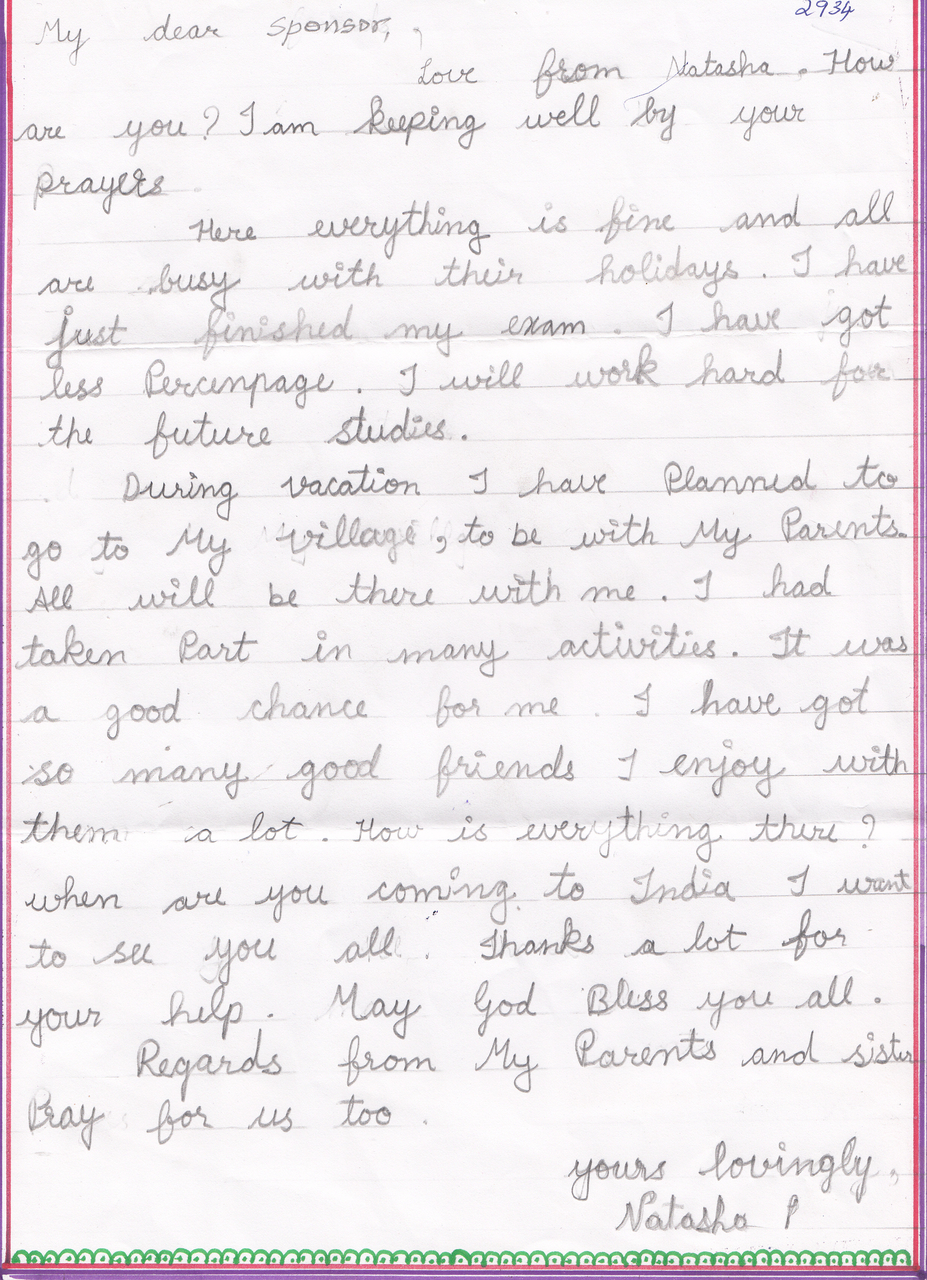 2934
My dear sponsor,
Love from Natasha. How
are you? I am keeping well by your
prayers
Here everything is fine and all
are busy with their holidays. I have
just finished my exam. I have got
less Percenpage. I will work hard for
the future studies.
During vacation I have Planned to
go to My village, to be with My Parents.
All will be there with me. I had
taken Part in many activities. It was
a good chance for me. I have got
so many good friends I enjoy with
them a lot. How is everything there?
when are you coming to India I want
to see you all. Thanks a lot for
your help. May God Bless you all.
Regards from My Parents and sister
Pray for us too.
yours lovingly,
Natasha P